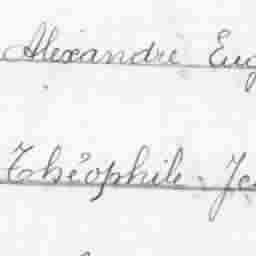 Alexandre Eug
Théophile Je